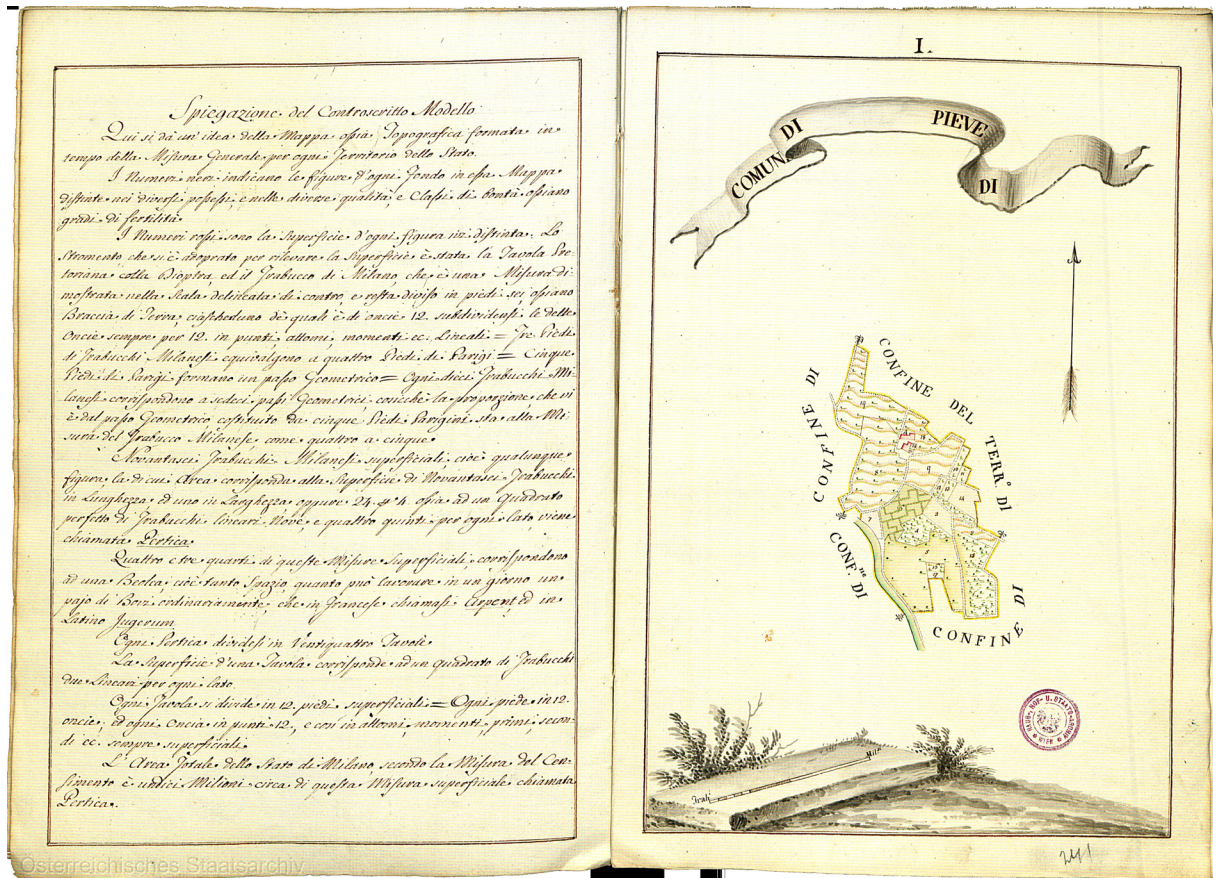 Spiegazione del Controscritto Modello
Qui si dà un' idea della Mappa ossia Topografica formata in
tempo della Misura Generale per ogni Territorio dello Stato.
I Numeri neri indicano le figure d'ogni Fondo in essa Mappa
distinte nei diversi possessi, e nelle diverse qualità, e Classi di bontà ossiano
gradi di fertilità.
I Numeri rossi sono la Superficie d'ogni figura ivi distinta. Lo
Stromento che si è adoprato per rilevare la Superficie è stata la Tavola Pre-
toriana colla Dioptra, ed il Trabucco di Milano, che è una Misura di-
mostrata nella Scala delineata di contro, e resta diviso in piedi sei ossiano
Braccia di Terra, ciascheduno de quali è di oncie 12. subdividensi le dette
Oncie sempre per 12. in punti, attomi, momenti ec. Lineali = Tre Piedi
di Trabucchi Milanesi equivalgono a quattro Piedi di Parigi = Cinque
Piedi di Parigi formano un passo Geometrico = Ogni dieci Trabucchi Mi-
lanesi corrispondono a sedeci passi Geometrici, cosicche la proporzione che vi
è dal passo Geometrico costituito da cinque Piedi Parigini sta alla Mi-
sura del Trabucco Milanese come quattro a cinque.
Novantasei Trabucchi Milanesi superficiali, cioè qualunque
figura, la di cui Area corrisponda alla Superficie di Novantasei Trabucchi
in Lunghezza, ed uno in Larghezza oppure 24. p 4. ossia ad un Quadrato
perfetto di Trabucchi lineari Nove, e quattro quinti per ogni lato viene
chiamata Pertica.
Quattro e tre quarti di queste Misure Superficiali corrispondono
ad una Beolca, cioè tanto Spazio quanto può lavorare in un giorno un
pajo di Bovi ordinariamente, che in Francese chiamasi Arpent, ed in
Latino Jugerum.
Ogni Pertica dividesi in Ventiquattro Tavole.
La Superficie d'una Tavola corrisponde ad un quadrato di Trabucchi
due Lineari per ogni lato.
Ogni Tavola si divide in 12. piedi superficiali = Ogni piede in 12.
oncie, ed ogni Oncia in punti 12, e così in attomi, momenti, primi, secon-
di ec. sempre superficiali.
L' Area Totale dello Stato di Milano secondo la Misura del Cen-
simento è undici Milioni circa di questa Misura superficiale chiamata
Pertica.
Österreichisches Staatsarchiv
I.
COMUN. DI
PIEVE DI
CONFINE DI
CONFINE DEL TERR.º DI
CONF.ne DI
CONFINE DI
HAUS- HOF- U. STAATS-ARCHIV
WIEN
Trab.
241